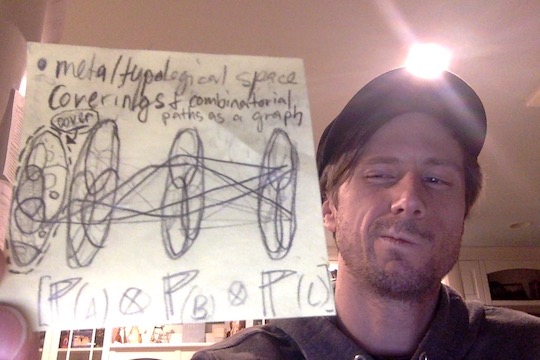 • meta/typological space
Coverings & combinatorial
paths as a graph
cover
[P(A) ⊗ P(B) ⊗ P(C)]